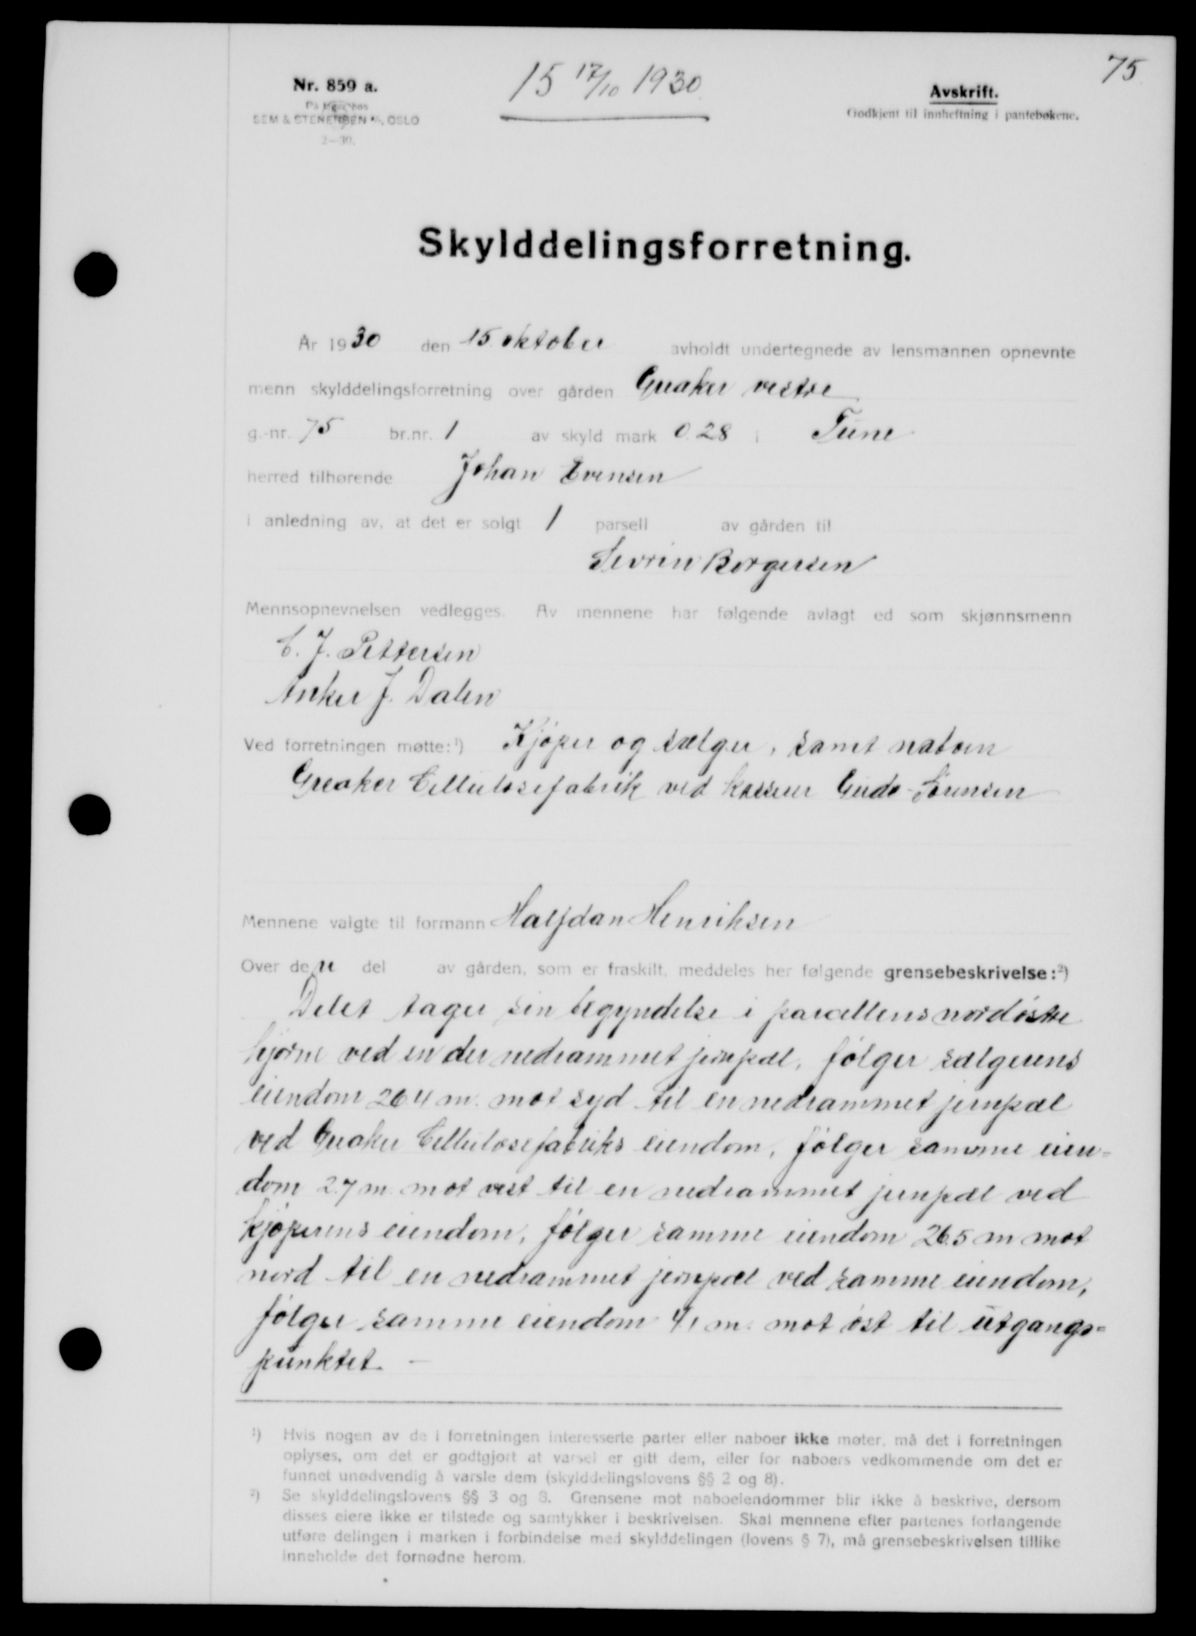 75
Nr. 859 a.
15 17/10 1930
Avskrift.
SEM & STENERSEN A/S, OSLO
Godkjent til innheftning i pantebøkene.
2—30.
Skylddelingsforretning.
År 1930 den 15 oktober avholdt undertegnede av lensmannen opnevnte
menn skylddelingsforretning over gården Greaker vestre
g.-nr. 75 br.nr. 1 av skyld mark 0.28 i Tune
herred tilhørende Johan Evensen
i anledning av, at det er solgt 1 parsell av gården til
Sevrin Borgersen
Mennsopnevnelsen vedlegges. Av mennene har følgende avlagt ed som skjønnsmenn
C. J. Pettersen
Anker J. Dalen
Ved forretningen møtte:¹) Kjøper og sælger, samt naboen
Greaker Cellulosefabrik ved kasserer Gude-Sørensen
Mennene valgte til formann Halfdan Henriksen
Over den del av gården, som er fraskilt, meddeles her følgende grensebeskrivelse:²)
Delet tager sin begyndelse i parcellens nordøstre
hjørne ved en der nedrammet jernpæl, følger sælgerens
eiendom 26.4 m. mot syd til en nedrammet jernpæl
ved Greaker Cellulosefabriks eiendom, følger samme eien-
dom 27 m mot vest til en nedrammet jernpæl ved
kjøperens eiendom, følger samme eiendom 26.5 m mot
nord til en nedrammet jernpæl ved samme eiendom,
følger samme eiendom m. mot øst til utgangs-
punktet. —
¹) Hvis nogen av de i forretningen interesserte parter eller naboer ikke møter, må det i forretningen
oplyses, om det er godtgjort at varsel er gitt dem, eller for naboers vedkommende om det er
funnet unødvendig å varsle dem (skylddelingslovens §§ 2 og 8).
²) Se skylddelingslovens §§ 3 og 8. Grensene mot naboeiendommer blir ikke å beskrive, dersom
disses eiere ikke er tilstede og samtykker i beskrivelsen. Skal mennene efter partenes forlangende
utføre delingen i marken i forbindelse med skylddelingen (lovens § 7), må grensebeskrivelsen tillike
inneholde det fornødne herom.